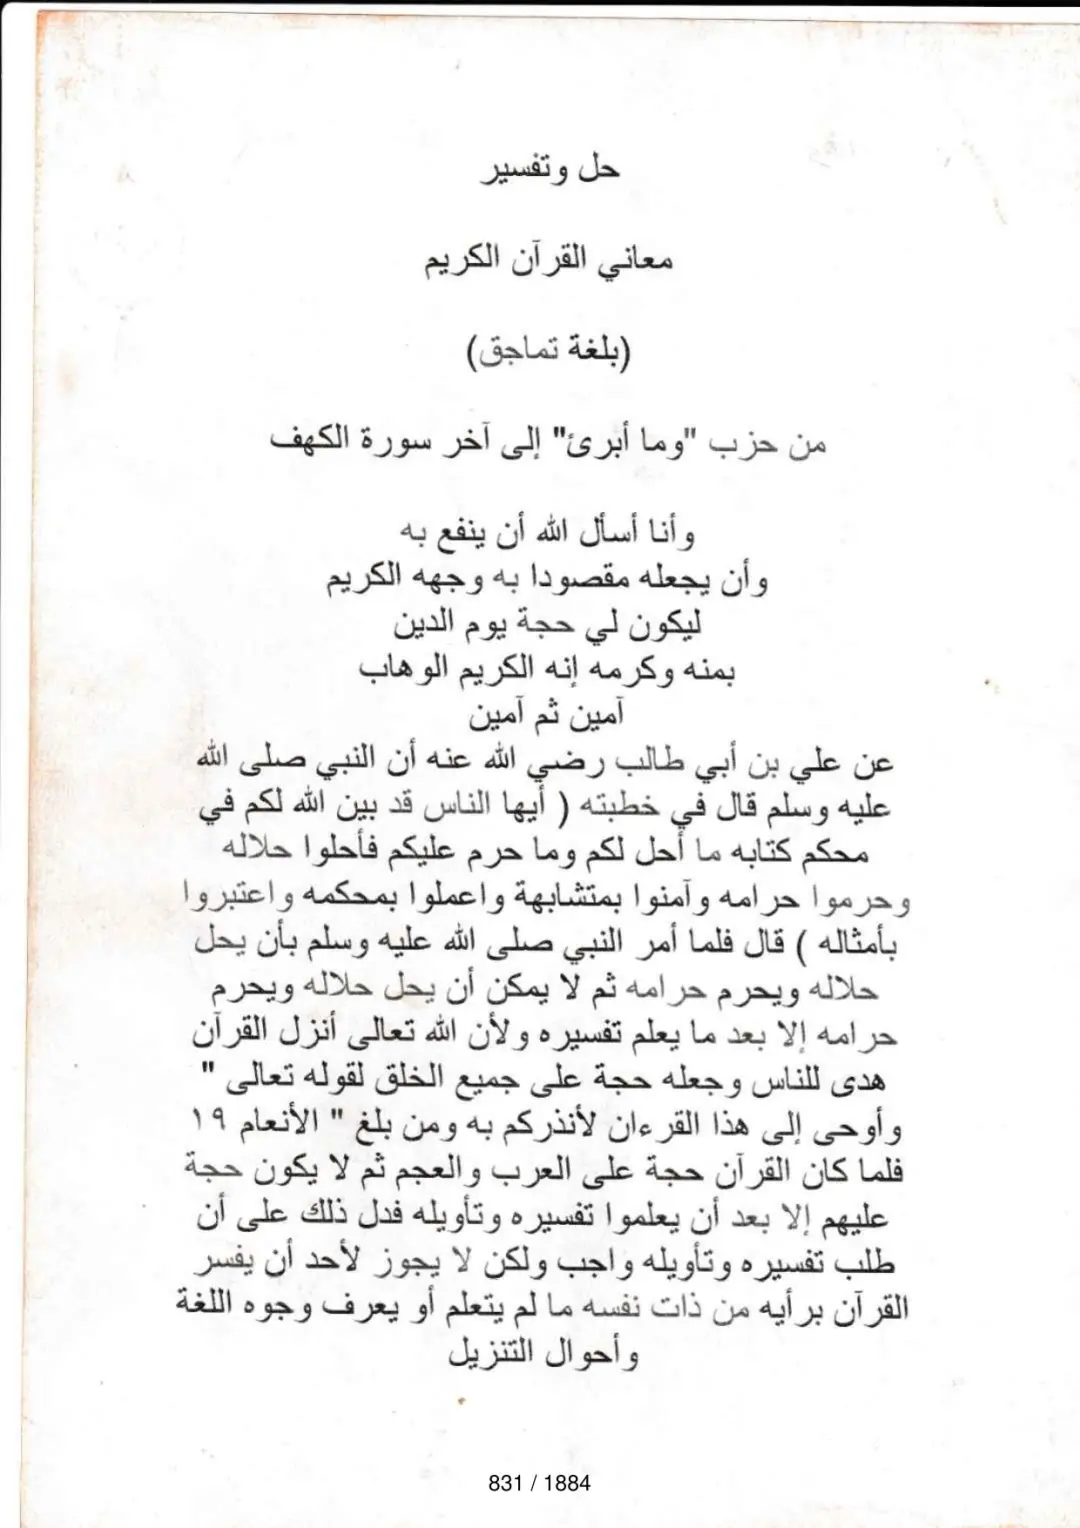 حل وتفسير
معاني القرآن الكريم
(بلغة تماجق)
من حزب "وما أبرئ" إلى آخر سورة الكهف
وأنا أسأل الله أن ينفع به
وأن يجعله مقصودا به وجهه الكريم
ليكون لي حجة يوم الدين
بمنه وكرمه إنه الكريم الوهاب
آمين ثم آمين
عن علي بن أبي طالب رضي الله عنه أن النبي صلى الله
عليه وسلم قال في خطبته ( أيها الناس قد بين الله لكم في
محكم كتابه ما أحل لكم وما حرم عليكم فأحلوا حلاله
وحرموا حرامه وآمنوا بمتشابهة واعملوا بمحكمه واعتبروا
بأمثاله ) قال فلما أمر النبي صلى الله عليه وسلم بأن يحل
حلاله ويحرم حرامه ثم لا يمكن أن يحل حلاله ويحرم
حرامه إلا بعد ما يعلم تفسيره ولأن الله تعالى أنزل القرآن
هدى للناس وجعله حجة على جميع الخلق لقوله تعالى "
وأوحى إلى هذا القرءان لأنذركم به ومن بلغ " الأنعام ١٩
فلما كان القرآن حجة على العرب والعجم ثم لا يكون حجة
عليهم إلا بعد أن يعلموا تفسيره وتأويله فدل ذلك على أن
طلب تفسيره وتأويله واجب ولكن لا يجوز لأحد أن يفسر
القرآن برأيه من ذات نفسه ما لم يتعلم أو يعرف وجوه اللغة
وأحوال التنزيل
831 / 1884